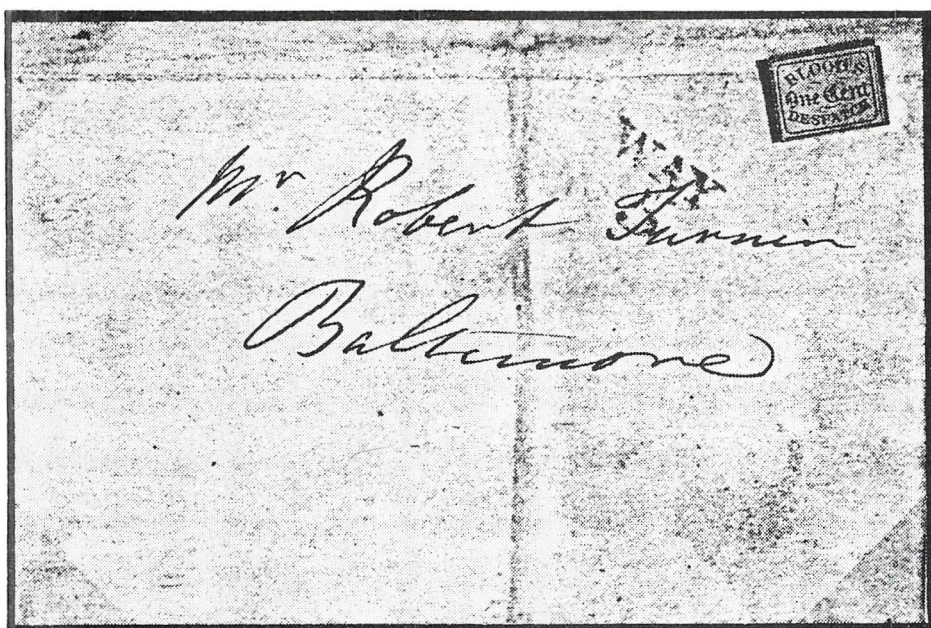 BLOOD'S
One Cent
DESPATCH
Mr. Robert Furnin
Baltimore